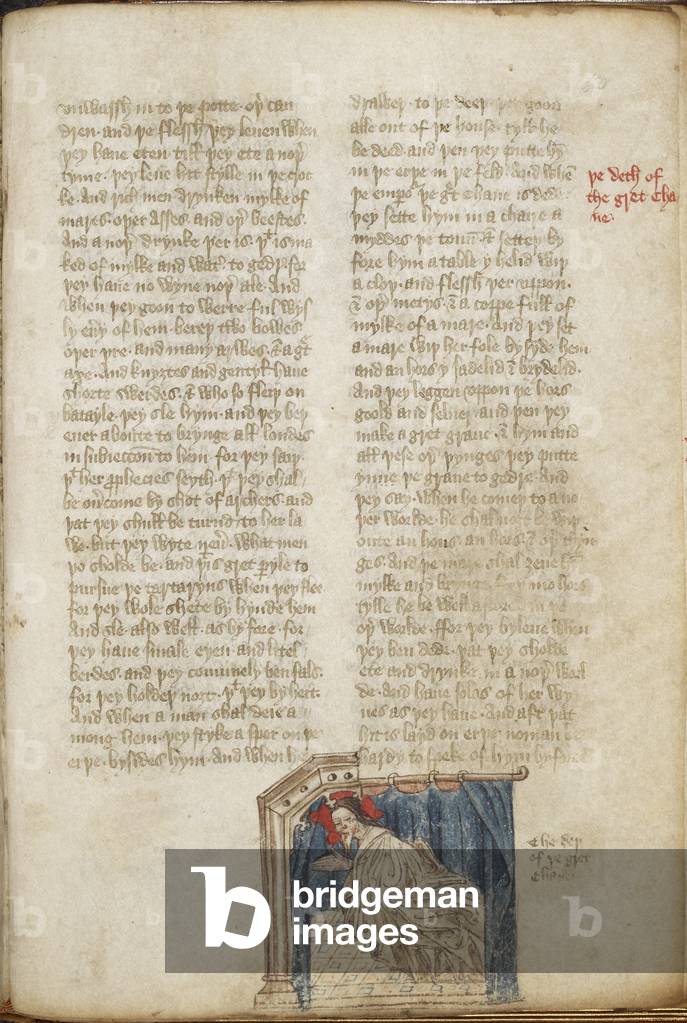 vnwassħ in to þe potte· oþ̉ cau
dren· and þe flessħ þey leuen when
þey haue eten· till þey ete a noþ̉
tyme· þey leue hit stylle in þe
ke· And rich men drynken mylke of
mares· oþer asses· and oþ̉ beestes·
And a noþ̉ drynke þer is· þͭ is ma
ked of mylke and wat̉· to gedr̉· for
þey haue no wyne noþ̉ ale· And
when þey goon to werre ful wys
ly eủy of hem· bereþ two bowes·
oþer þre· and many arwes· & a gͭ
axe· And knyȝtes and gentyls haue
shorte swerdes· & who so fleeþ on
batayle· þey sle hym· and þey beþ
euer aboute to brynge aƚƚ londes
in subieccōn to hem· for þey say·
þͭ her ꝓphecies seyth· þͭ þey shal
be oủcome by shot of archers· and
þat þey shuƚƚ be turnd to her la
we· but þey wyte neủ· what men
þo sholde be· and þͥs gret ꝑyle to
pursue þe tartaryns when þey flee
for þey wole shete by hynde hem
And sle· also weƚƚ· as by fore· for
þey haue smale eyen· and litel
berdes· and þey comunely ben fals·
for þey holdeþ nort· þͭ þey by hett·
And when a man shal deie a
mong hem· þey styke a sper on þe
erþe· bysides hym· And when he
draweþ· to þe deeþ þey goon
alle out of þe house· tyƚƚ he
be deed· and þen þey putte hym
in þe erþe in þe feld· And whē
þe emꝑo᷑ þe gͭ chane is dede·
þey sette hym in a chaire a
myddes þe tent· & setteþ by
fore hym a table y helid wiþ
a cloþ· and flessħ þer vppon·
& oþ̉ metys· & a coppe fuƚƚ of
mylke of a mare· And þey set
a mare wiþ her fole by syde hem
and an hors y sadelid & brydelid·
And þey leggen vppon þe hors
goold and seluer· and þen þey
make a gret graue· & hym and
aƚƚ þese oþ̉ þynges þey putte
ynne þe graue to gedre· and
þey say· when he comeþ to a no
þer worlde· he shal nort be wiþ
oute an hous· an hors· & oþ̉ þyn
ges· and þe mare shal
mylke and brynge hors
tylle he be weƚƚ in þe
oþ̉ worlde· ffor þey byleue when
þey ben dede· þat þey sholde
ete and drynke· in a noþ̉ worl
de· And haue solas of her wy
ues as þey haue· And aft̉ þat
hit is layd on erþe noman be
hardy to speke of hym by fore
þe deth of
the gret cha
ne·
The deþ
of þe gret
Chane·
b
bridgeman
images